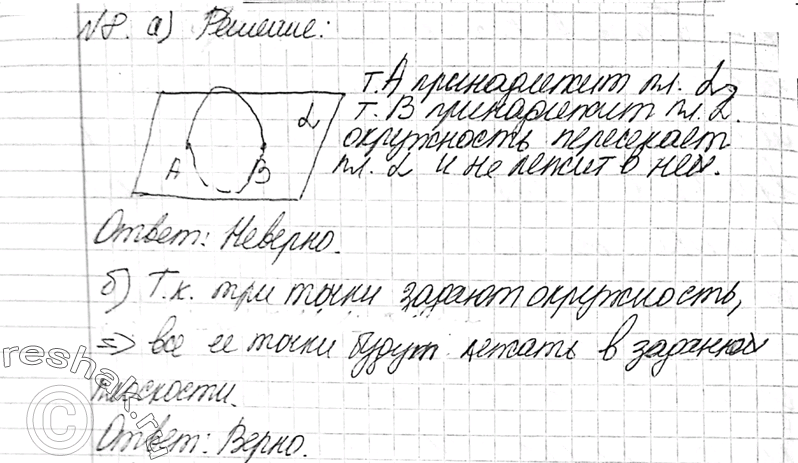 №8. а) Решение:
т. А принадлежит пл. α,
т. В принадлежит пл. α.
окружность пересекает
пл. α и не лежит в ней.
α
А В
Ответ: Неверно.
б) Т.к. три точки задают окружность,
=> все ее точки будут лежать в заданной
плоскости.
Ответ: Верно.
reshak.ru
©